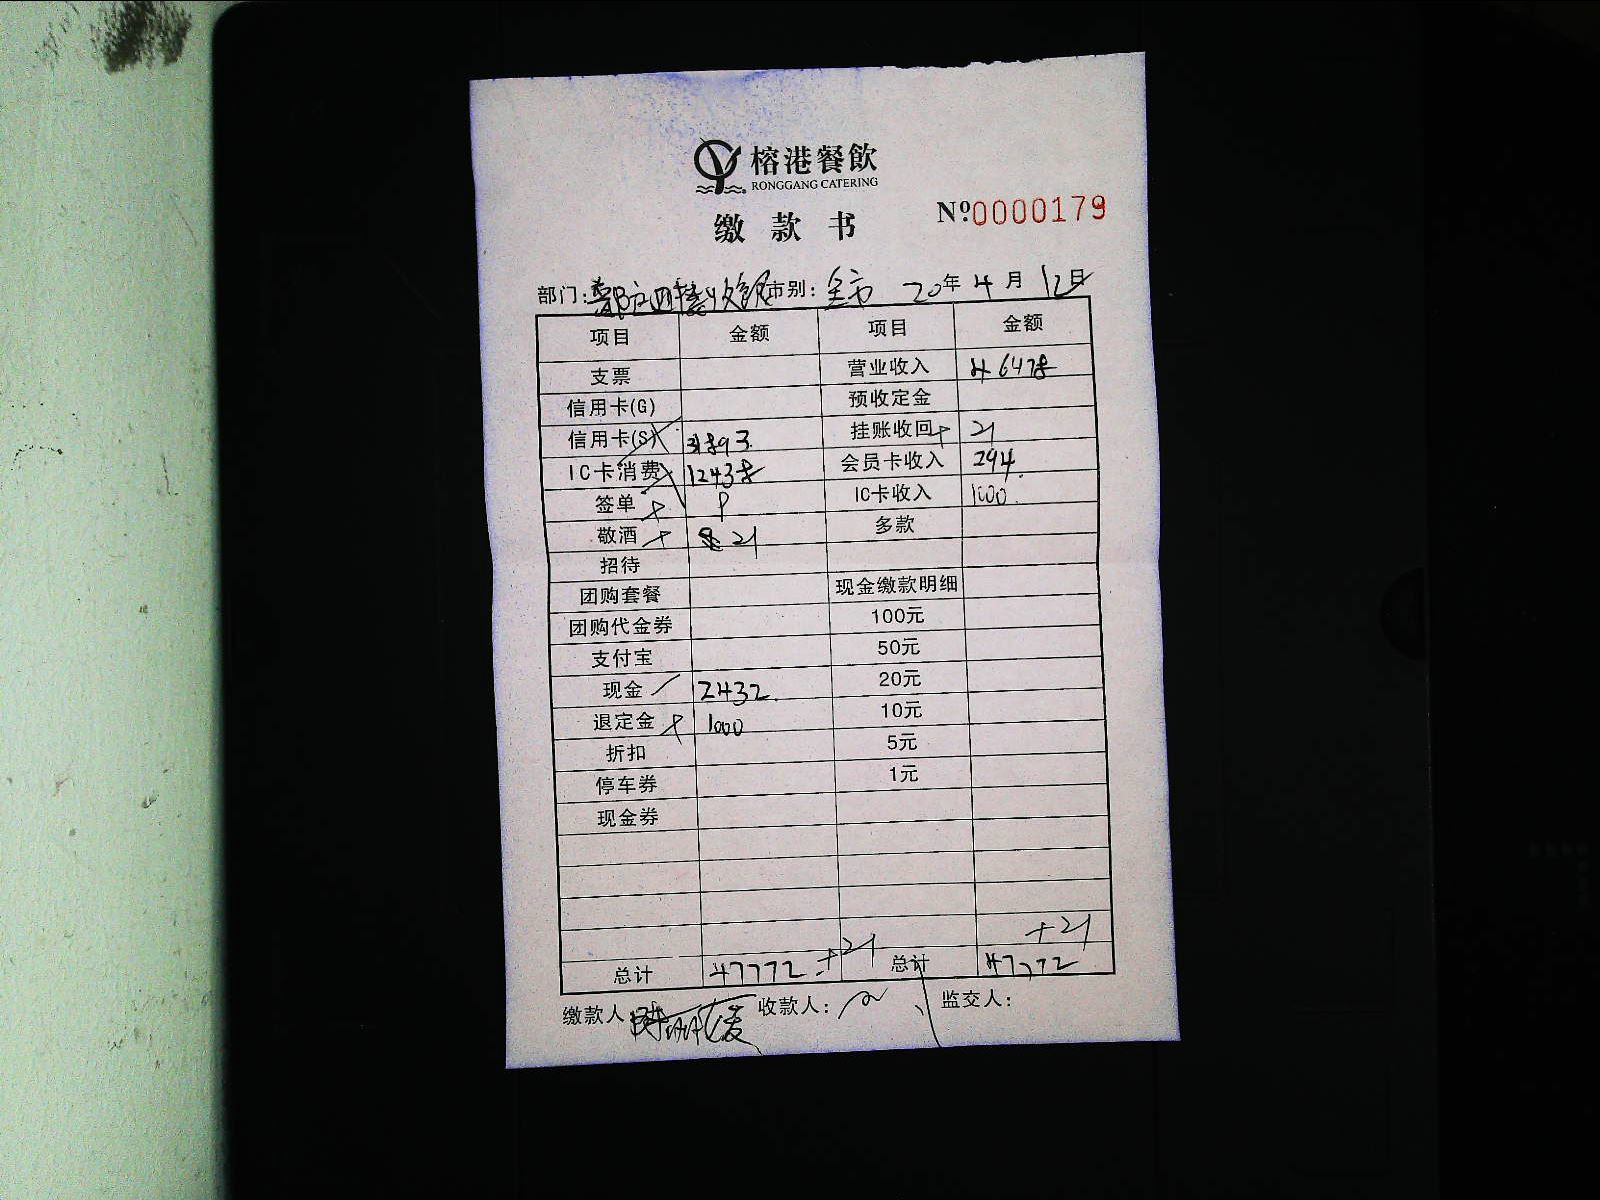 榕港餐飲
RONGGANG CATERING
缴款书 Nº0000179
部门: 四楼收银 市别: 全市 20年 4月 12日
项目 金额 项目 金额
支票 营业收入 46478
信用卡(G) 预收定金
信用卡(S) 31893 挂账收回+ 21
IC卡消费 12438 会员卡收入 294
签单 9 IC卡收入 1000
敬酒 21 多款
招待
团购套餐 现金缴款明细
团购代金券 100元
支付宝 50元
现金 2432 20元
退定金 1000 10元
折扣 5元
停车券 1元
现金券
+21
总计 47772 +21 总计 47772
缴款人: 收款人: 监交人: